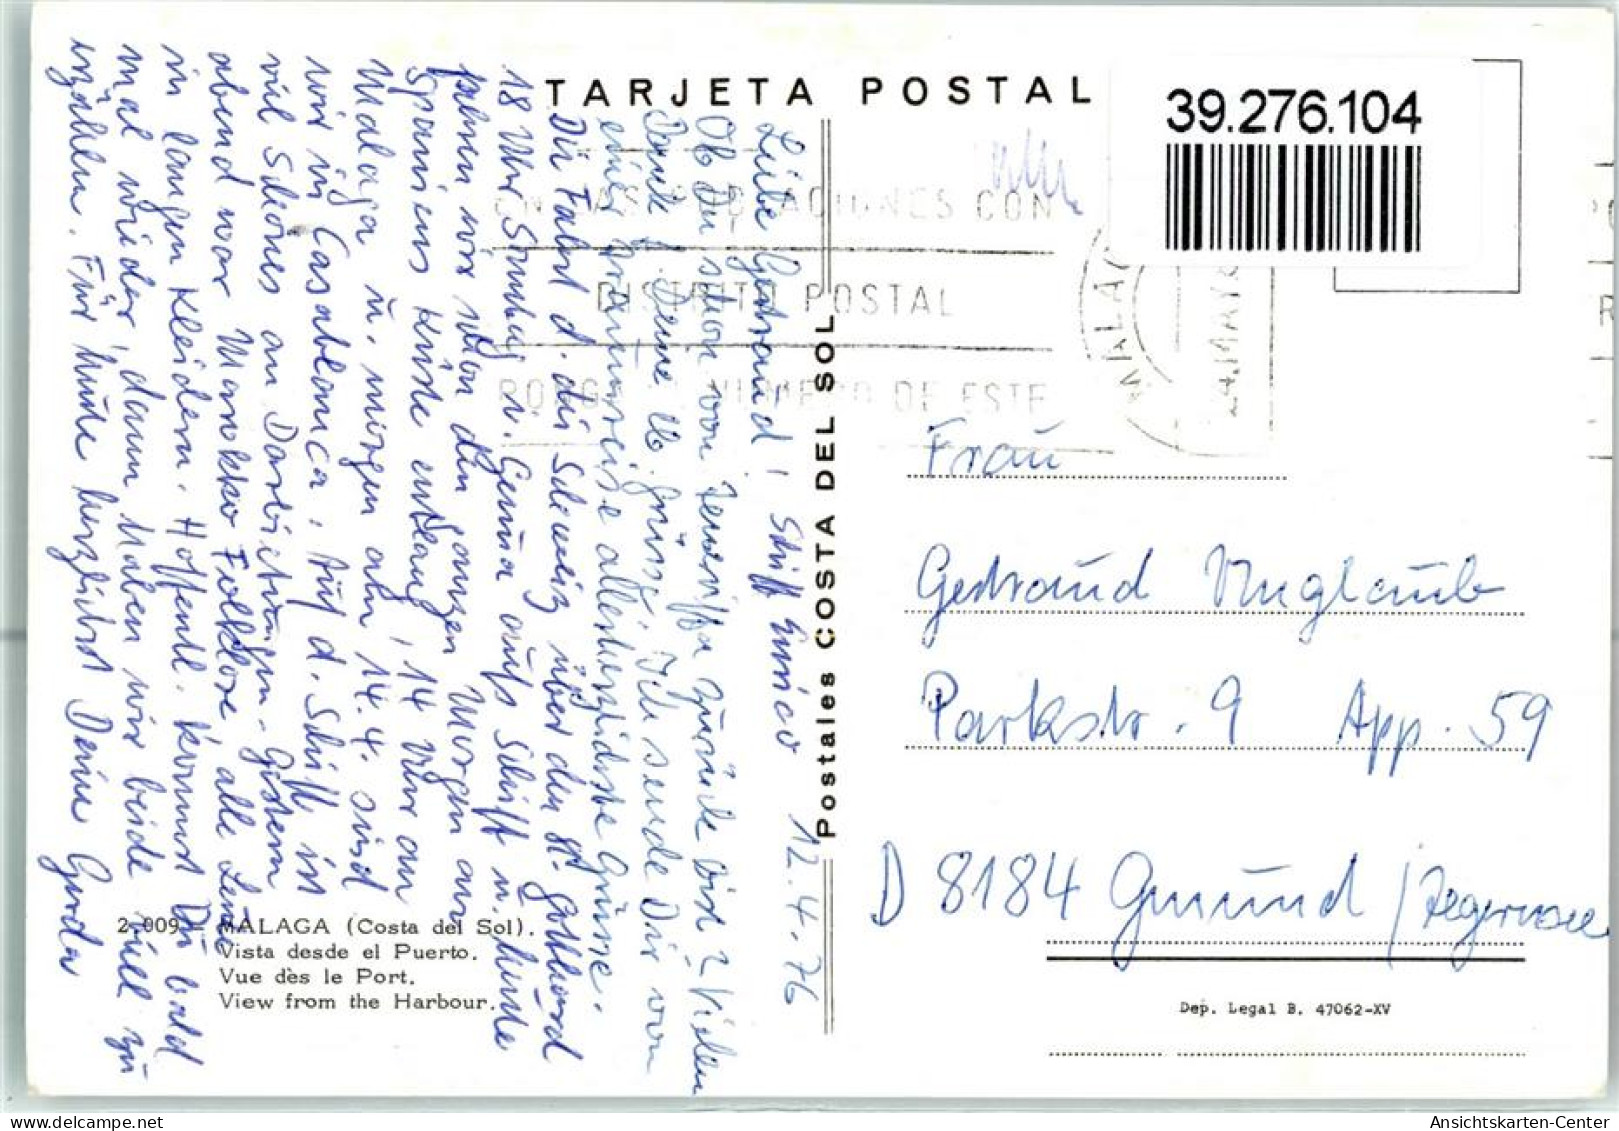 TARJETA POSTAL
39.276.104
CON
DISTRITO POSTAL
NUMERO DE ESTE
MALAGA
Postales COSTA DEL SOL
Schiff Enrico 12.4.76
Liebe Gertraud!
Ob Du schon von Teneriffa zurück bist? Vielen
Dank f. Deine lb. Grüsse. Ich sende Dir von
einer Traumreise allerherzlichste Grüsse.
Die Fahrt d. die Schweiz über den St. Gotthard
18 Uhr Sonntag v. Genua aufs Schiff u. heute
fahren wir schon den ganzen Morgen an
Spaniens Küste entlang, 14 Uhr an
Malaga u. morgen abn, 14.4. sind
wir in Casablanca. Auf d. Schiff ist
viel Schönes an Darbietungen. Gestern
abend war Marokko Folklore, alle
in langen Kleidern. Hoffentl. kommst Du bald
mal wieder, dann haben wir beide viel zu
erzählen. Für heute herzlichst Deine Gerda
Frau
Gertraud Unglaub
Parkstr. 9 App. 59
D 8184 Gmund / Tegernsee
2.009 MALAGA (Costa del Sol).
Vista desde el Puerto.
Vue dès le Port.
View from the Harbour.
Dep. Legal B. 47062-XV
Ansichtskarten-Center